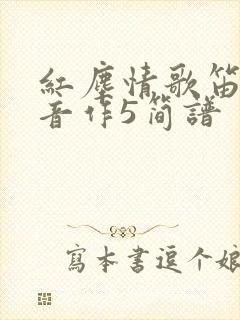 紅塵情歌笛
音作5简譜
寫本書逗个娘